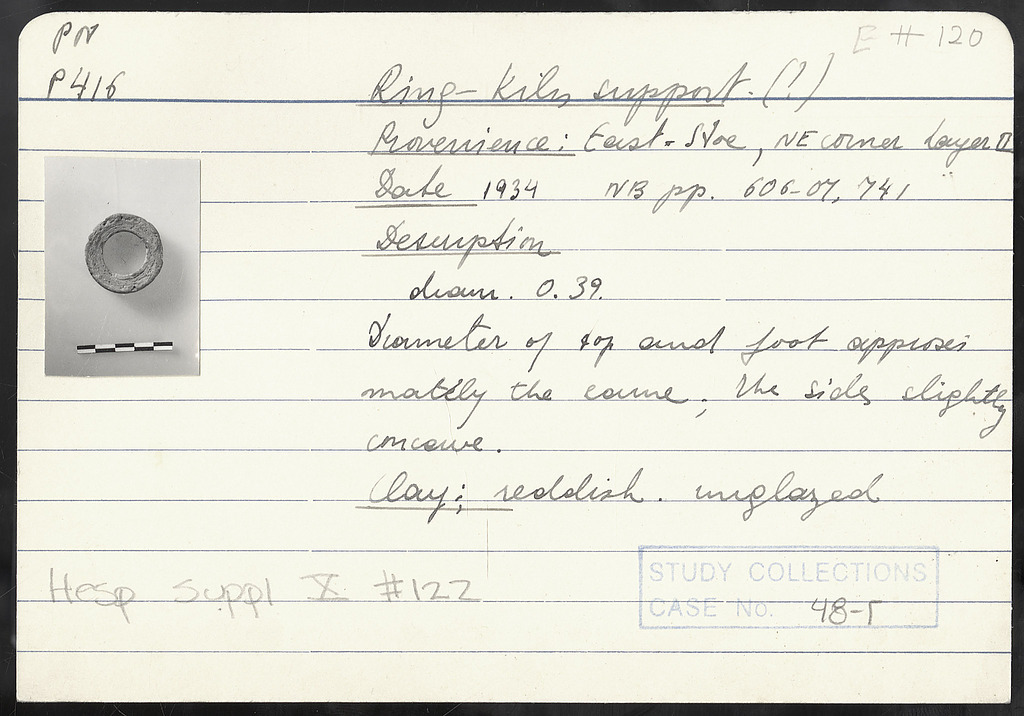 PN
E # 120
P 416
Ring-Kiln support. (?)
Provenience: East-Stoe, NE corner Layer II
Date 1934 NB pp. 606-07, 741
Description
diam. 0.39.
Diameter of top and foot approxi
matlly the same; the sides slightly
concave.
Clay; reddish. unglazed
Hesp Suppl X #122
STUDY COLLECTIONS
CASE No. 48-Γ